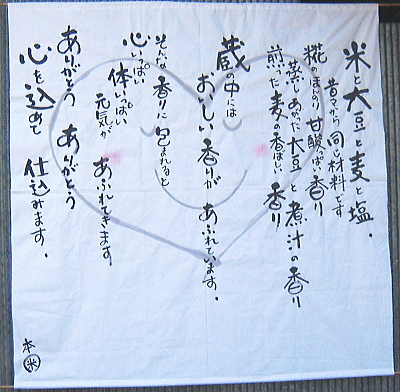 米と大豆と麦と塩。
昔々から同じ材料です
糀のほんのり甘酸っぱい香り
蒸しあがった大豆と煮汁の香り
煎った麦の香ばしい香り
蔵の中には
おいしい香りがあふれています。
そんな香りに包まれると
心いっぱい
体いっぱい
元気が
あふれてきます。
ありがとう ありがとう
心を込めて 仕込みます。
本
米